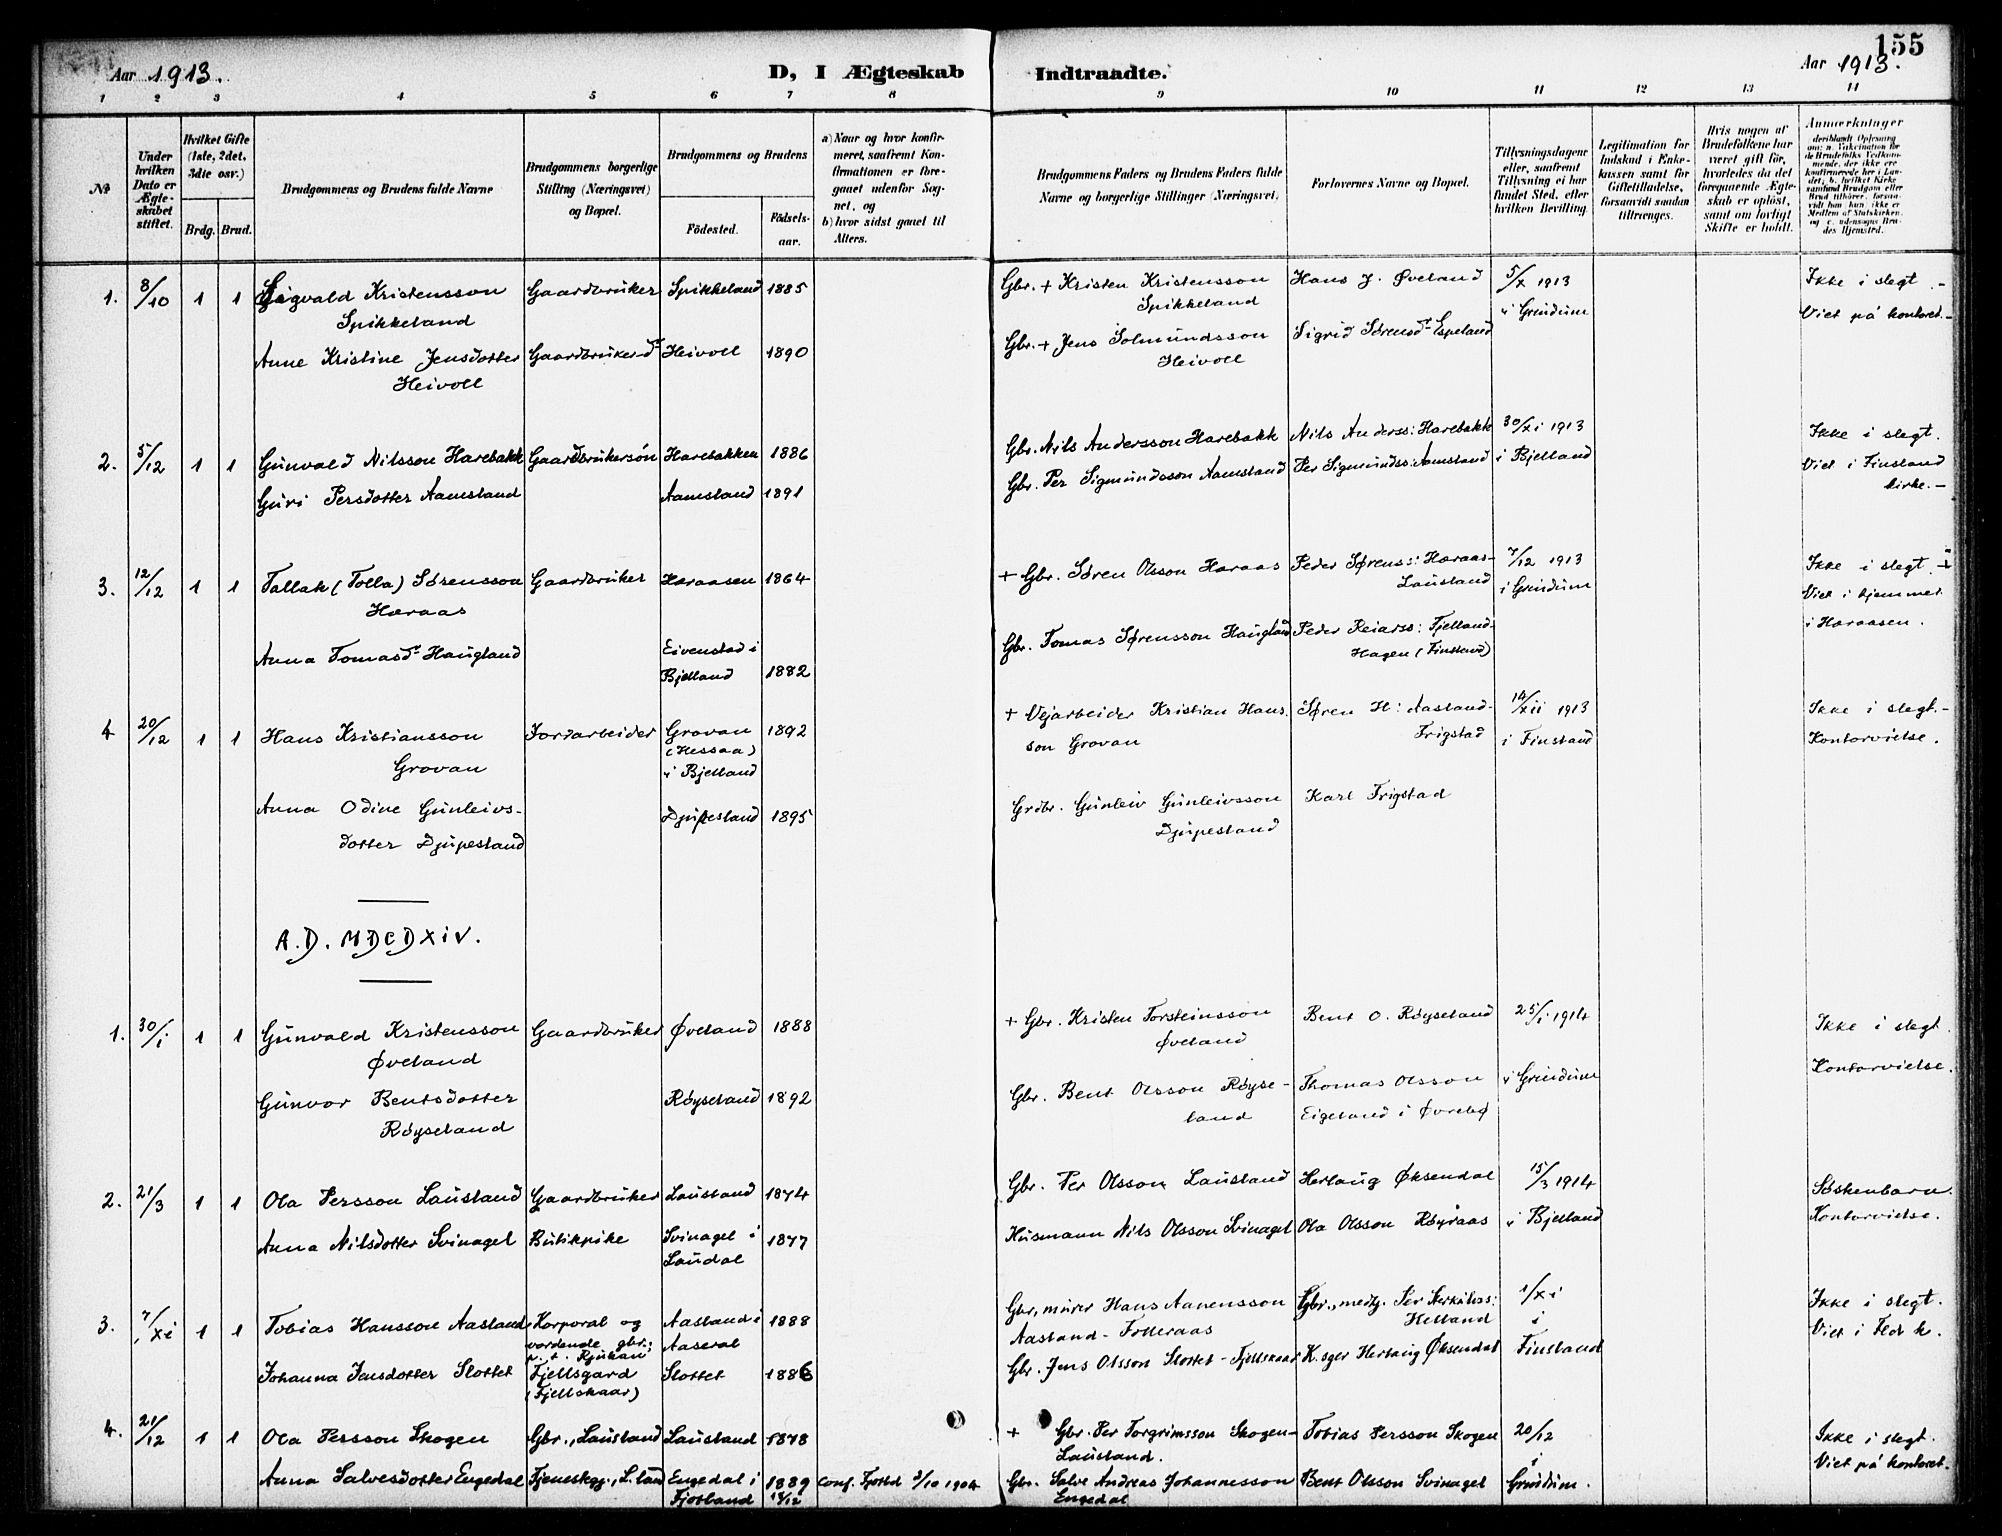 155
Aar 1913.
D, I Ægteskab Indtraadte.
Aar 1913.
1 2 3 4 5 6 7 8 9 10 11 12 13 14
Nr
Under hvilken Dato er Ægteskabet stiftet.
Hvilket Gifte (1ste, 2det, 3die osv.)
Brdg. Brud.
Brudgommens og Brudens fulde Navne
Brudgommens borgerlige Stilling (Næringsvei) og Bopæl.
Brudgommens og Brudens
Fødested.
Fødselsaar.
a) Naar og hvor konfirmeret, saafremt Konfirmationen er foregaaet udenfor Sognet, og
b) hvor sidst gaaet til Alters.
Brudgommens Faders og Brudens Faders fulde Navne og borgerlige Stillinger (Næringsvei).
Forlovernes Navne og Bopæl.
Tillysningsdagene eller, saafremt Tillysning ei har fundet Sted, efter hvilken Bevilling.
Legitimation for Indskud i Enkekassen samt for Giftetilladelse, forsaavidt saadan tiltrænges.
Hvis nogen af Brudefolkene har været gift før, hvorledes da det foregaaende Ægteskab er opløst, samt om lovligt Skifte er holdt.
Anmærkninger
1. 8/10 1 1 Sigvald Kristensson Gaardbruker Spikkeland 1885 Gbr. + Kristen Kristensson Hans J. Øveland 5/X 1913 Ikke i slegt.-
Spikkeland Spikkeland i Grindum Viet på kontoret.-
Anne Kristine Jensdotter Gaardbrukerdr Heivoll 1890 Gbr. + Jens Solmundsson Sigrid Sørensdr Espeland
Heivoll Heivoll
2. 5/12 1 1 Gunvald Nilsson Harebakk Gaardbrukersøn Harebakken 1886 Gbr. Nils Andersson Harebakk Nils Anderss: Harebakk 30/xi 1913 Ikke i slegt.
Guri Persdotter Aamstand Aamstand 1891 Gbr. Per Sigmundsson Aamstand Per Sigmundss: Aamstand i Bjelland Viet i Finsland
kirke.-
3. 12/12 1 1 Tallak (Tolla) Sørensson Gaardbruker Haraasen 1864 + Gbr. Søren Olsson Haraas Peder Sørenss: Haraas- 7/12 1913 Ikke i slegt.
Haraas Lausland i Grindum Viet i hjemmet
Anna Tomasdr Haugland Eivenstad i Gbr. Tomas Sørensson Haugland Peder Reiarss: Fjelland- i Haraasen.
Bjelland 1882 Hagen (Finsland)
4 20/12 1 1 Hans Kristiansson Jordarbeider Grovan 1892 + Vejarbeider Kristian Hans- Søren H: Aasland- 14/xii 1913 Ikke i slegt.-
Grovan (Hessaa) son Grovan Frigstad i Finsland Kontorvielse.
i Bjelland
Anna Odine Gunleivs- Djupesland 1895 Grdbr. Gunleiv Gunleivsson Karl Frigstad
dotter Djupesland Djupesland
A.D. MDCDXIV.
1. 30/i 1 1 Gunvald Kristensson Gaardbruker Øveland 1888 + Gbr. Kristen Torsteinsson Bent O. Røyseland 25/i 1914 Ikke i slegt.
Øveland Øveland
Gunvor Bentsdotter Røyseland 1892 Gbr. Bent Olsson Røyse- Thomas Olsson i Grindum Kontorvielse.
Røyseland land Eigeland i Øvrebø
2. 21/3 1 1 Ola Persson Lausland Gaardbruker Lausland 1874 Gbr. Per Olsson Lausland Herlaug Øksendal 15/3 1914 Søskenbarn.
Anna Nilsdotter Svinagel Butikpike Svinagel i 1877 Husmann Nils Olsson Svinagel Ola Olsson Røyraas i Bjelland Kontorvielse.
Laudal
3. 7/xi 1 1 Tobias Hansson Aasland Korporal og Aasland i 1888 Gbr, murer Hans Aanensson Gbr., medhj. Per Terkilss: 1/xi Ikke i slegt.
vordende gbr.; Aaseral Aasland- Helland i Viet i
p.t. Rjukan
Johanna Jensdotter Slottet Fjellsgard Slottet 1886 Gbr. Jens Olsson Slottet-Fjellskaar K.sger Herlaug Øksendal Finsland
(Fjellskaar)
4. 21/12 1 1 Ola Persson Skogen Gbr., Lausland Lausland 1878 + Gbr. Per Torgrimsson Skogen- Tobias Persson Skogen 20/12 Ikke i slegt.
Lausland. i Viet på kontoret.
Anna Salvesdotter Engedal Tjenestepg., L.land Engedal i 1889 Conf. Fjotld 2/10 1904 Gbr. Salve Andreas Johannesson Bent Olsson Svinagel Grindum.
Fjotland 15/12 Engedal